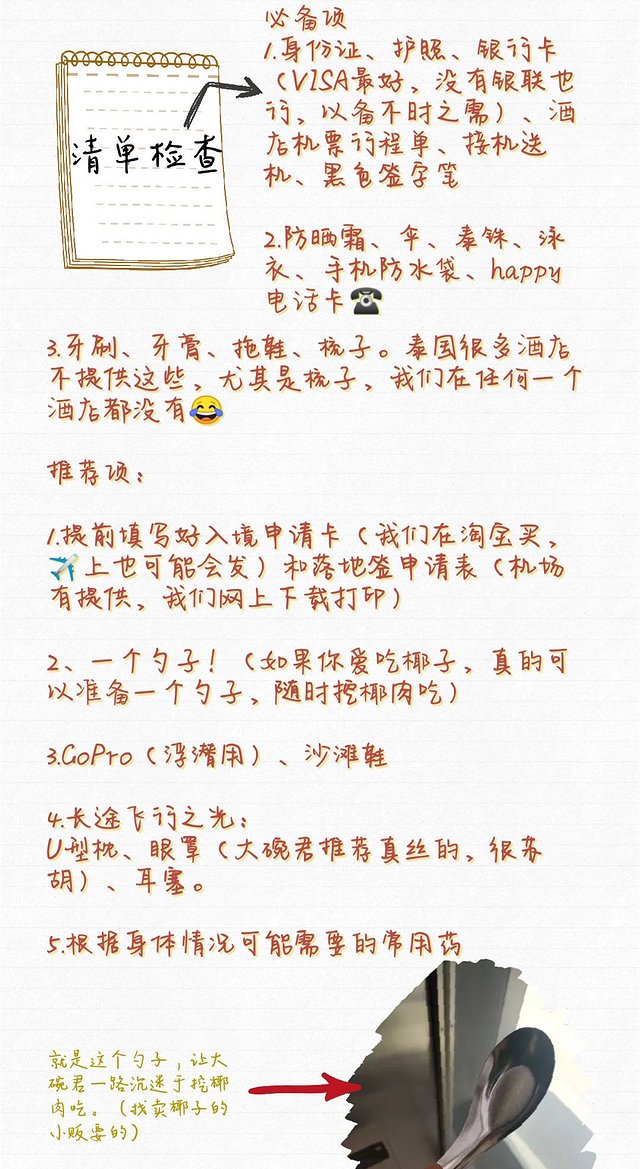 清单检查
必备项
1.身份证、护照、银行卡
（VISA最好，没有银联也
行，以备不时之需）、酒
店机票行程单、接机送
机、黑色签字笔
2.防晒霜、伞、泰铢、泳
衣、手机防水袋、happy
电话卡☎
3.牙刷、牙膏、拖鞋、梳子。泰国很多酒店
不提供这些，尤其是梳子，我们在任何一个
酒店都没有😂
推荐项：
1.提前填写好入境申请卡（我们在淘宝买，
✈️上也可能会发）和落地签申请表（机场
有提供，我们网上下载打印）
2、一个勺子！（如果你爱吃椰子，真的可
以准备一个勺子，随时挖椰肉吃）
3.GoPro（浮潜用）、沙滩鞋
4.长途飞行之光：
U型枕、眼罩（大碗君推荐真丝的，很苏
胡）、耳塞。
5.根据身体情况可能需要的常用药
就是这个勺子，让大
碗君一路沉迷于挖椰
肉吃。（找卖椰子的
小贩要的）